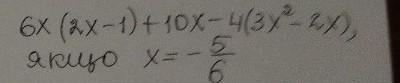 6x(2x-1)+10x-4(3x²-2x),
якщо x=-5/6